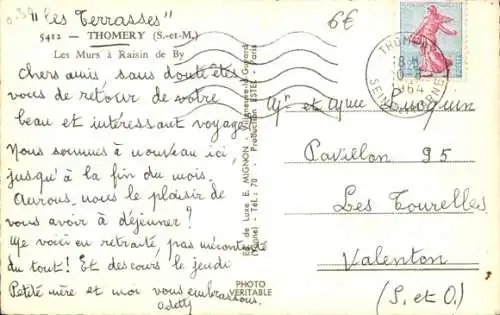 "Les Terrasses"
6€
5412 — THOMERY (S.-et-M.)
Les Murs à Raisin de By
Chers amis, sans doute êtes
vous de retour de votre
beau et intéressant voyage.
Nous sommes à nouveau ici,
jusqu'à la fin du mois.
Aurons, nous le plaisir de
vous avoir à déjeuner?
Me voici en retraité, pas mécontente
du tout! Et des cours le jeudi
Petite mère et moi vous embrassons.
Odette
de Luxe E. MIGNON -
(Yonne) - Tél.: 70 - Production ESTEL - Paris
PHOTO
VERITABLE
THOMERY
1964
SEINE ET MARNE
Mr et Mme
Pavillon 95
Les Tourelles
Valenton
(S. et O.)